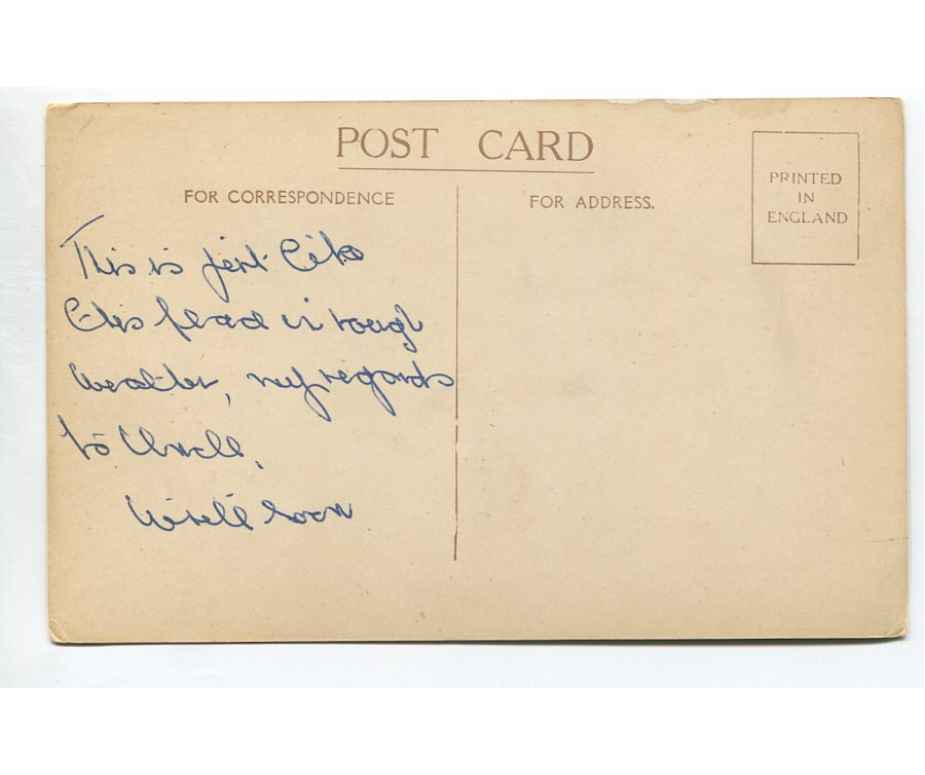 POST CARD
FOR CORRESPONDENCE
FOR ADDRESS.
PRINTED
IN
ENGLAND
This is just like
this in rough
weather, my regards
to Uncle.
Write soon